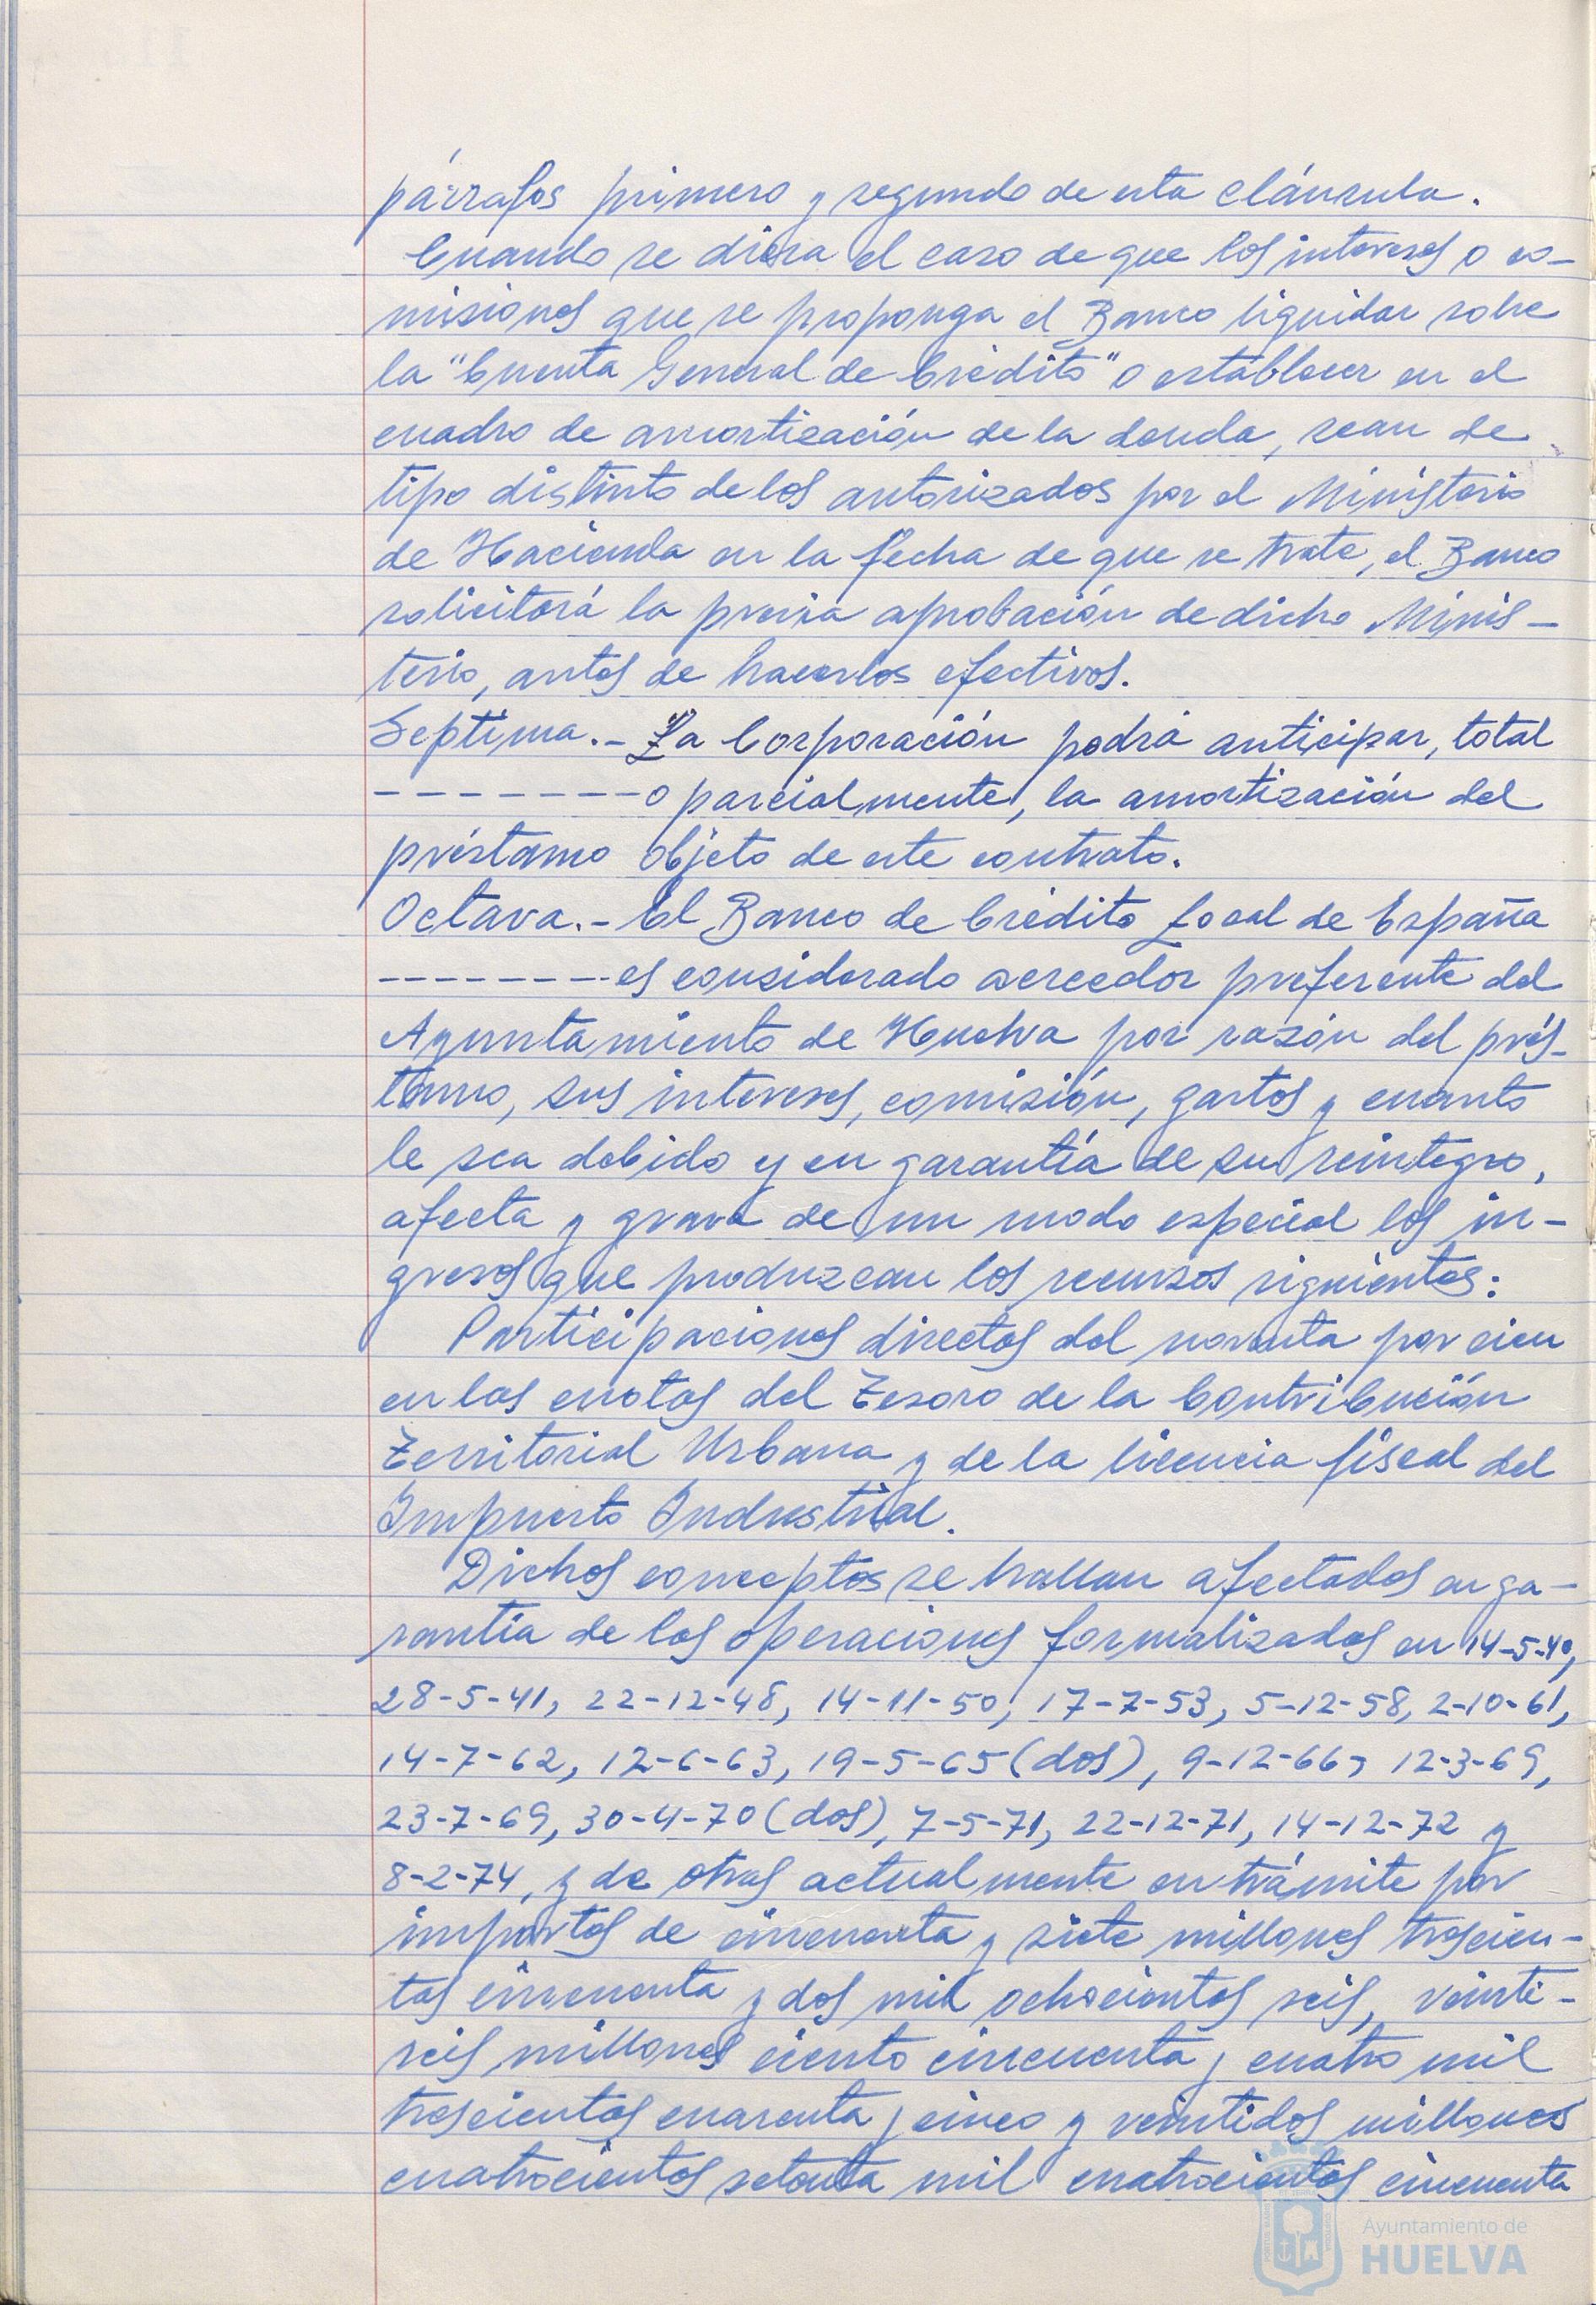 párrafos primero y segundo de esta cláusula.
Cuando se diera el caso de que los intereses o co-
misiones que se proponga el Banco liquidar sobre
la "Cuenta General de Crédito" o establecer en el
cuadro de amortización de la deuda, sean de
tipo distinto de los autorizados por el Ministerio
de Hacienda en la fecha de que se trate, el Banco
solicitará la previa aprobación de dicho Minis-
terio, antes de hacerlos efectivos.
Septima.- La Corporación podrá anticipar, total
-------- o parcialmente, la amortización del
préstamo objeto de este contrato.
Octava.- El Banco de Crédito Local de España
-------- es considerado acreedor preferente del
Ayuntamiento de Huelva por razón del prés-
tamo, sus intereses, comisión, gastos y cuanto
le sea debido y en garantía de su reintegro,
afecta y grava de un modo especial los in-
gresos que produzcan los recursos siguientes:
Participaciones directas del noventa por cien
en las cuotas del Tesoro de la Contribución
Territorial Urbana y de la licencia fiscal del
Impuesto Industrial.
Dichos conceptos se hallan afectados en ga-
rantía de las operaciones formalizadas en 14-5-40,
28-5-41, 22-12-48, 14-11-50, 17-7-53, 5-12-58, 2-10-61,
14-7-62, 12-6-63, 19-5-65 (dos), 9-12-66, 12-3-69,
23-7-69, 30-4-70 (dos), 7-5-71, 22-12-71, 14-12-72 y
8-2-74, y de otras actualmente en trámite por
importes de cincuenta y siete millones trescien-
tas cincuenta y dos mil ochocientas seis, veinti-
seis millones ciento cincuenta y cuatro mil
trescientas cuarenta y cinco y veintidos millones
cuatrocientas setenta mil cuatrocientas cincuenta
Ayuntamiento de
HUELVA